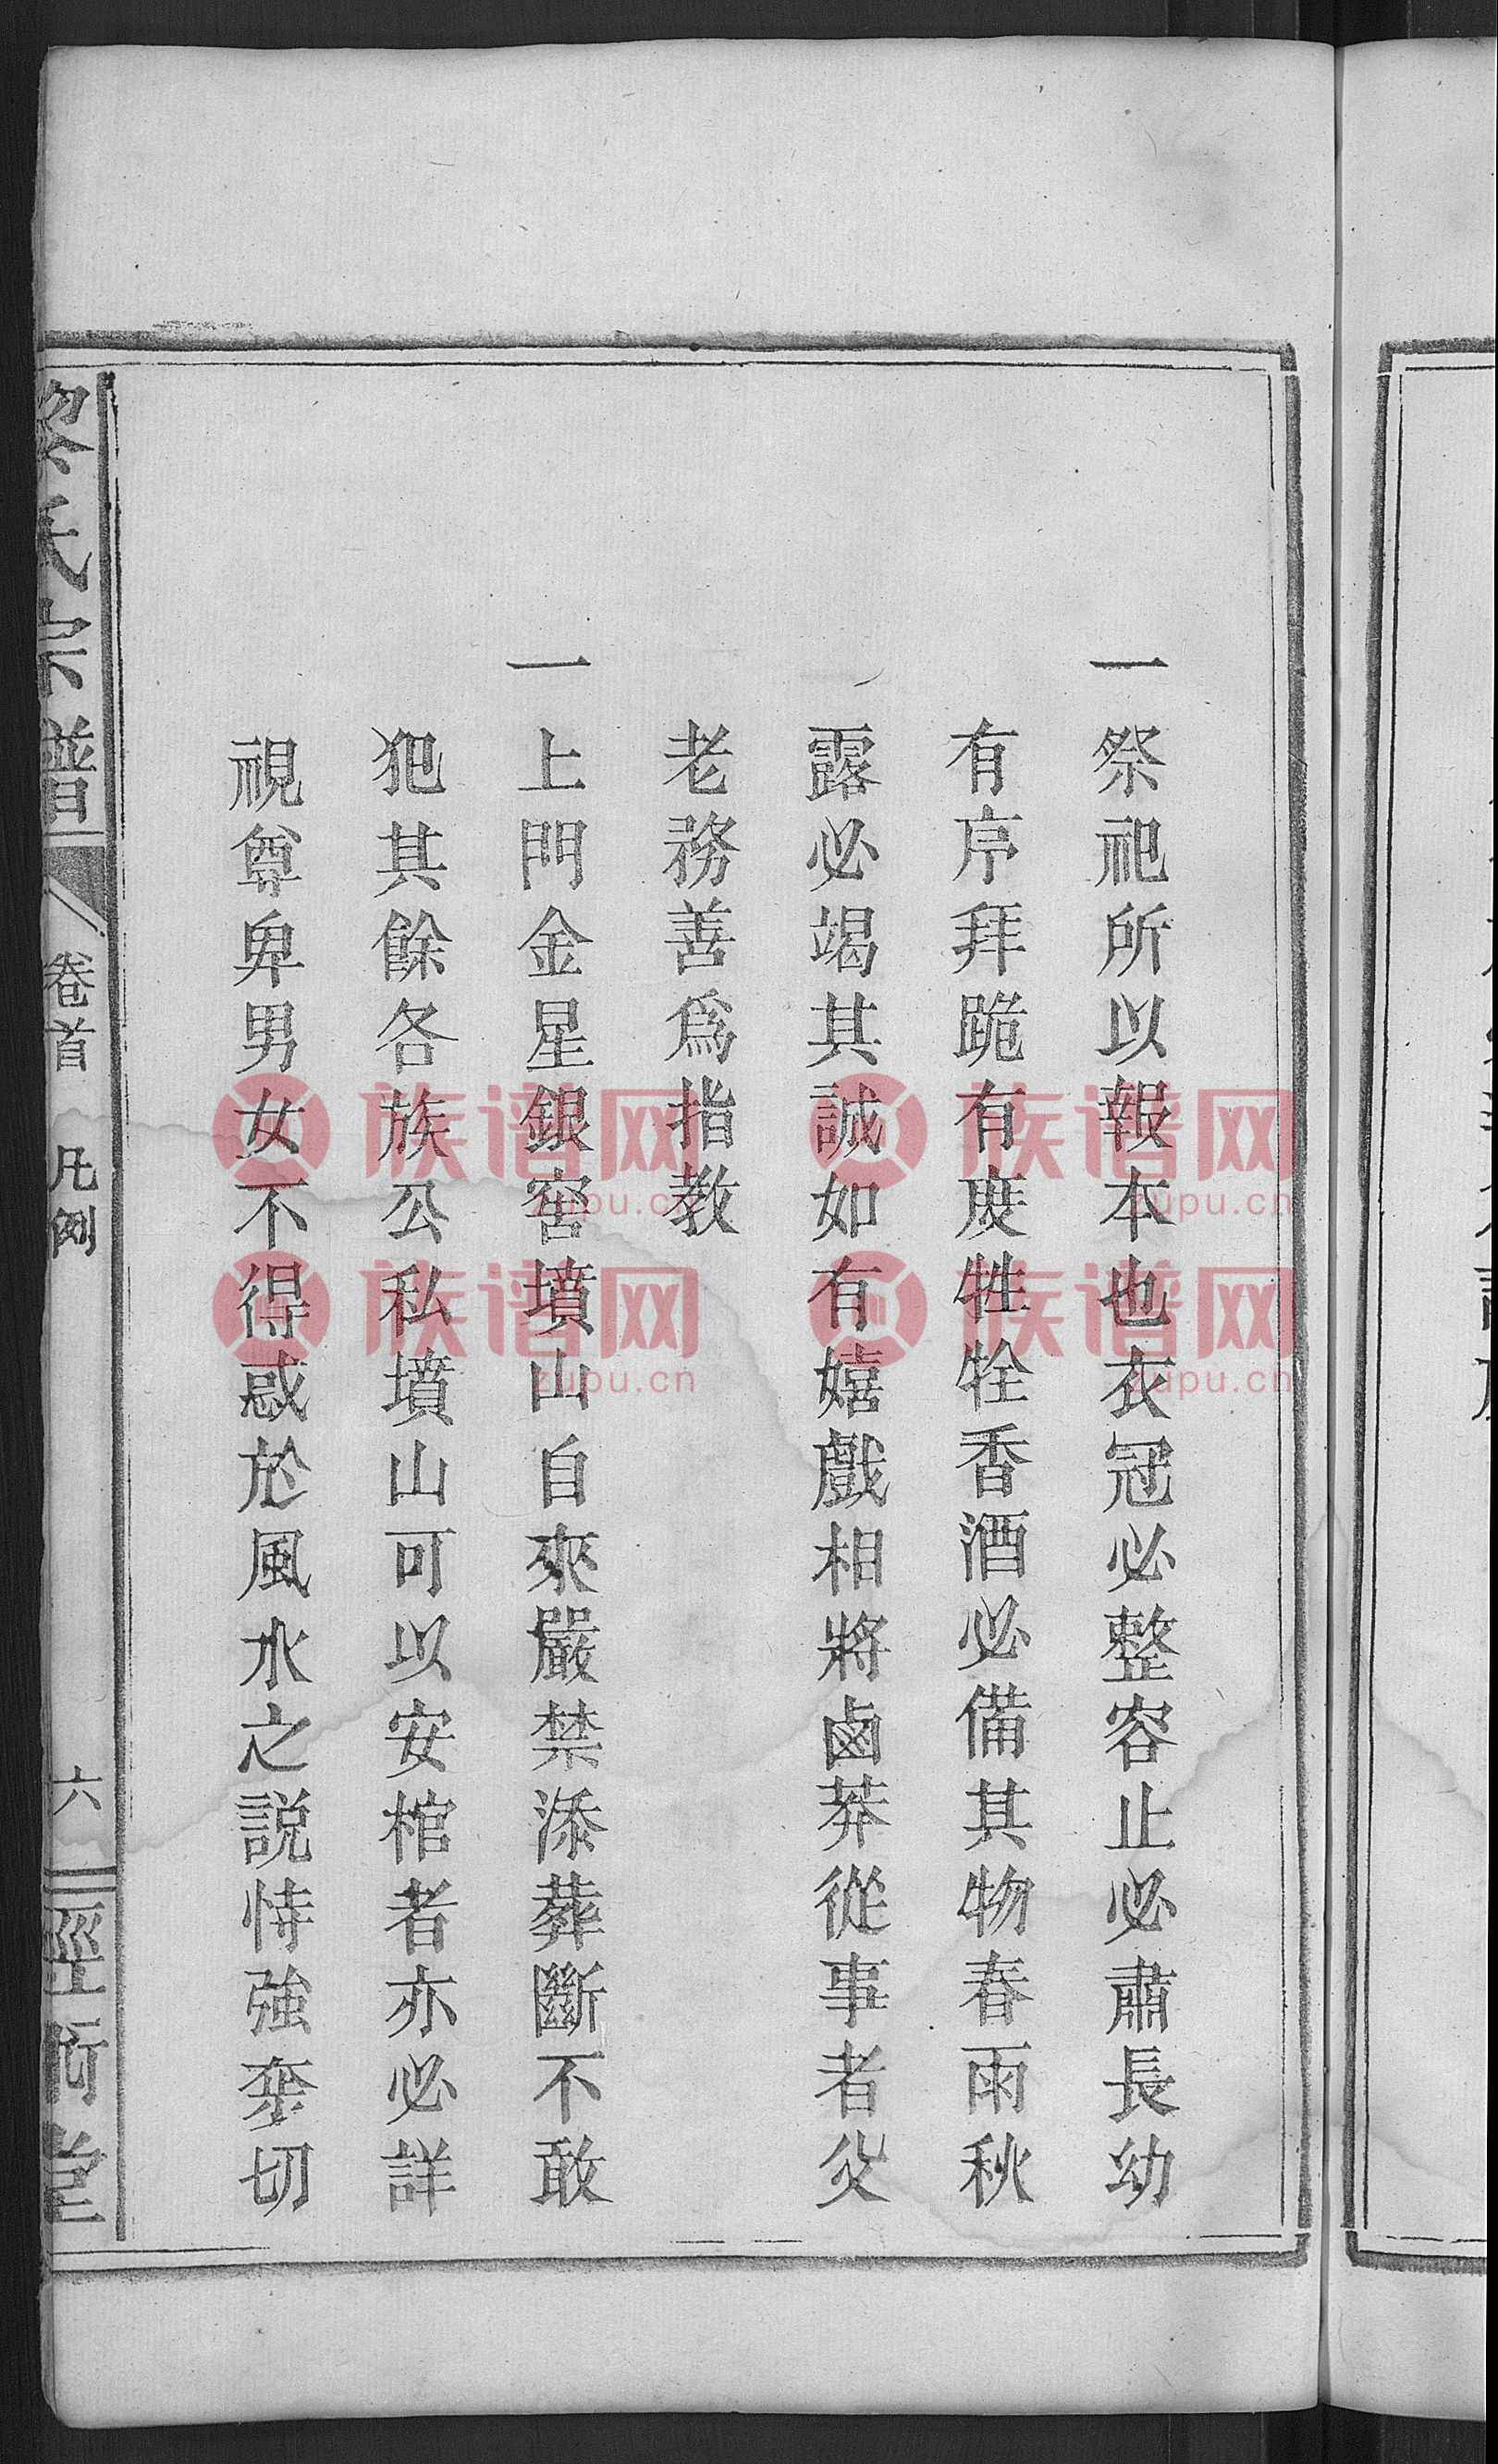 一祭祀所以報本也衣冠必整容止必肅長幼
有序拜跪有度牲牷香酒必備其物春雨秋
露必竭其誠如有嬉戲相將鹵莽從事者父
老務善爲指教
一上門金星銀窖墳山自來嚴禁添葬斷不敢
犯其餘各族公私墳山可以安棺者亦必詳
視尊卑男女不得惑於風水之説恃強奪切
黎氏宗譜
卷首 凡例
六
經術堂
族谱网
zupu.cn
族谱网
zupu.cn
族谱网
zupu.cn
族谱网
zupu.cn